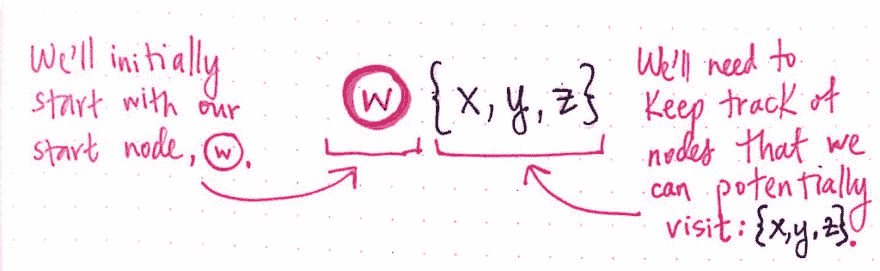 We'll initially
start with our
start node, w.
w {x, y, z}
We'll need to
keep track of
nodes that we
can potentially
visit: {x,y,z}.